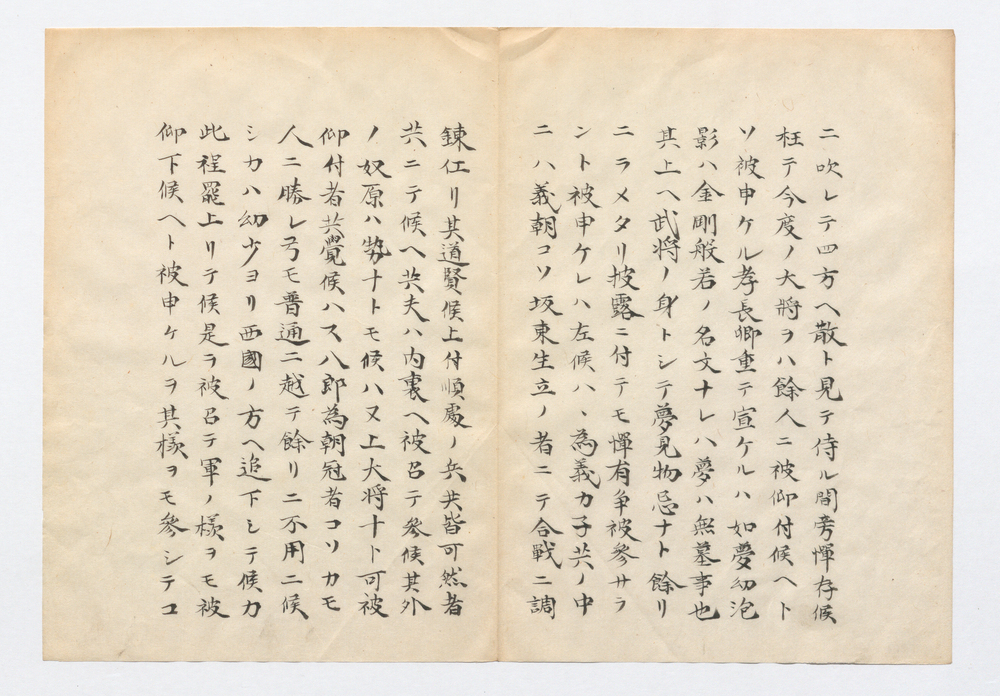 ニ吹レテ四方ヘ散ト見テ侍ル間旁憚存候
枉テ今度ノ大将ヲハ餘人ニ被仰付候ヘト
ソ被申ケル孝長卿重テ宣ケルハ如夢幻泡
影ハ金剛般若ノ名文ナレハ夢ハ無墓事也
其上ヘ武将ノ身トシテ夢見物忌ナト餘リ
ニヲメタリ披露ニ付テモ憚有争被參サラ
ント被申ケレハ左候ハヽ為義カ子共ノ中
ニハ義朝コソ坂東生立ノ者ニテ合戰ニ調
錬仕リ其道賢候上付順處ノ兵共皆可然者
共ニテ候ヘ共夫ハ内裏ヘ被召テ參候其外
ノ奴原ハ勢ナトモ候ハス上大将ナト可被
仰付者共覺候ハス八郎為朝冠者コソカモ
人ニ勝レ弓モ普通ニ越テ餘リニ不用ニ候
シカハ幼少ヨリ西國ノ方ヘ追下シテ候カ
此程罷上リテ候是ヲ被召テ軍ノ樣ヲモ被
仰下候ヘト被申ケルヲ其樣ヲモ參シテコ